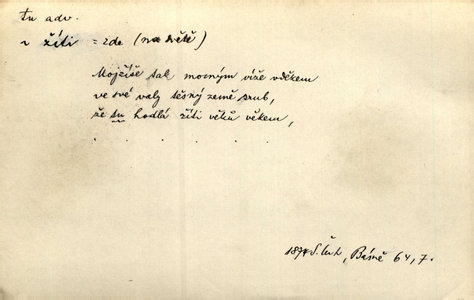 tu adv.
~ žíti = zde (na světě)
tak mocným víže vděkem
ve své valy těsný země srub,
že tu hodlá žíti věků věkem,
. . . . .
Básně 64, 7.